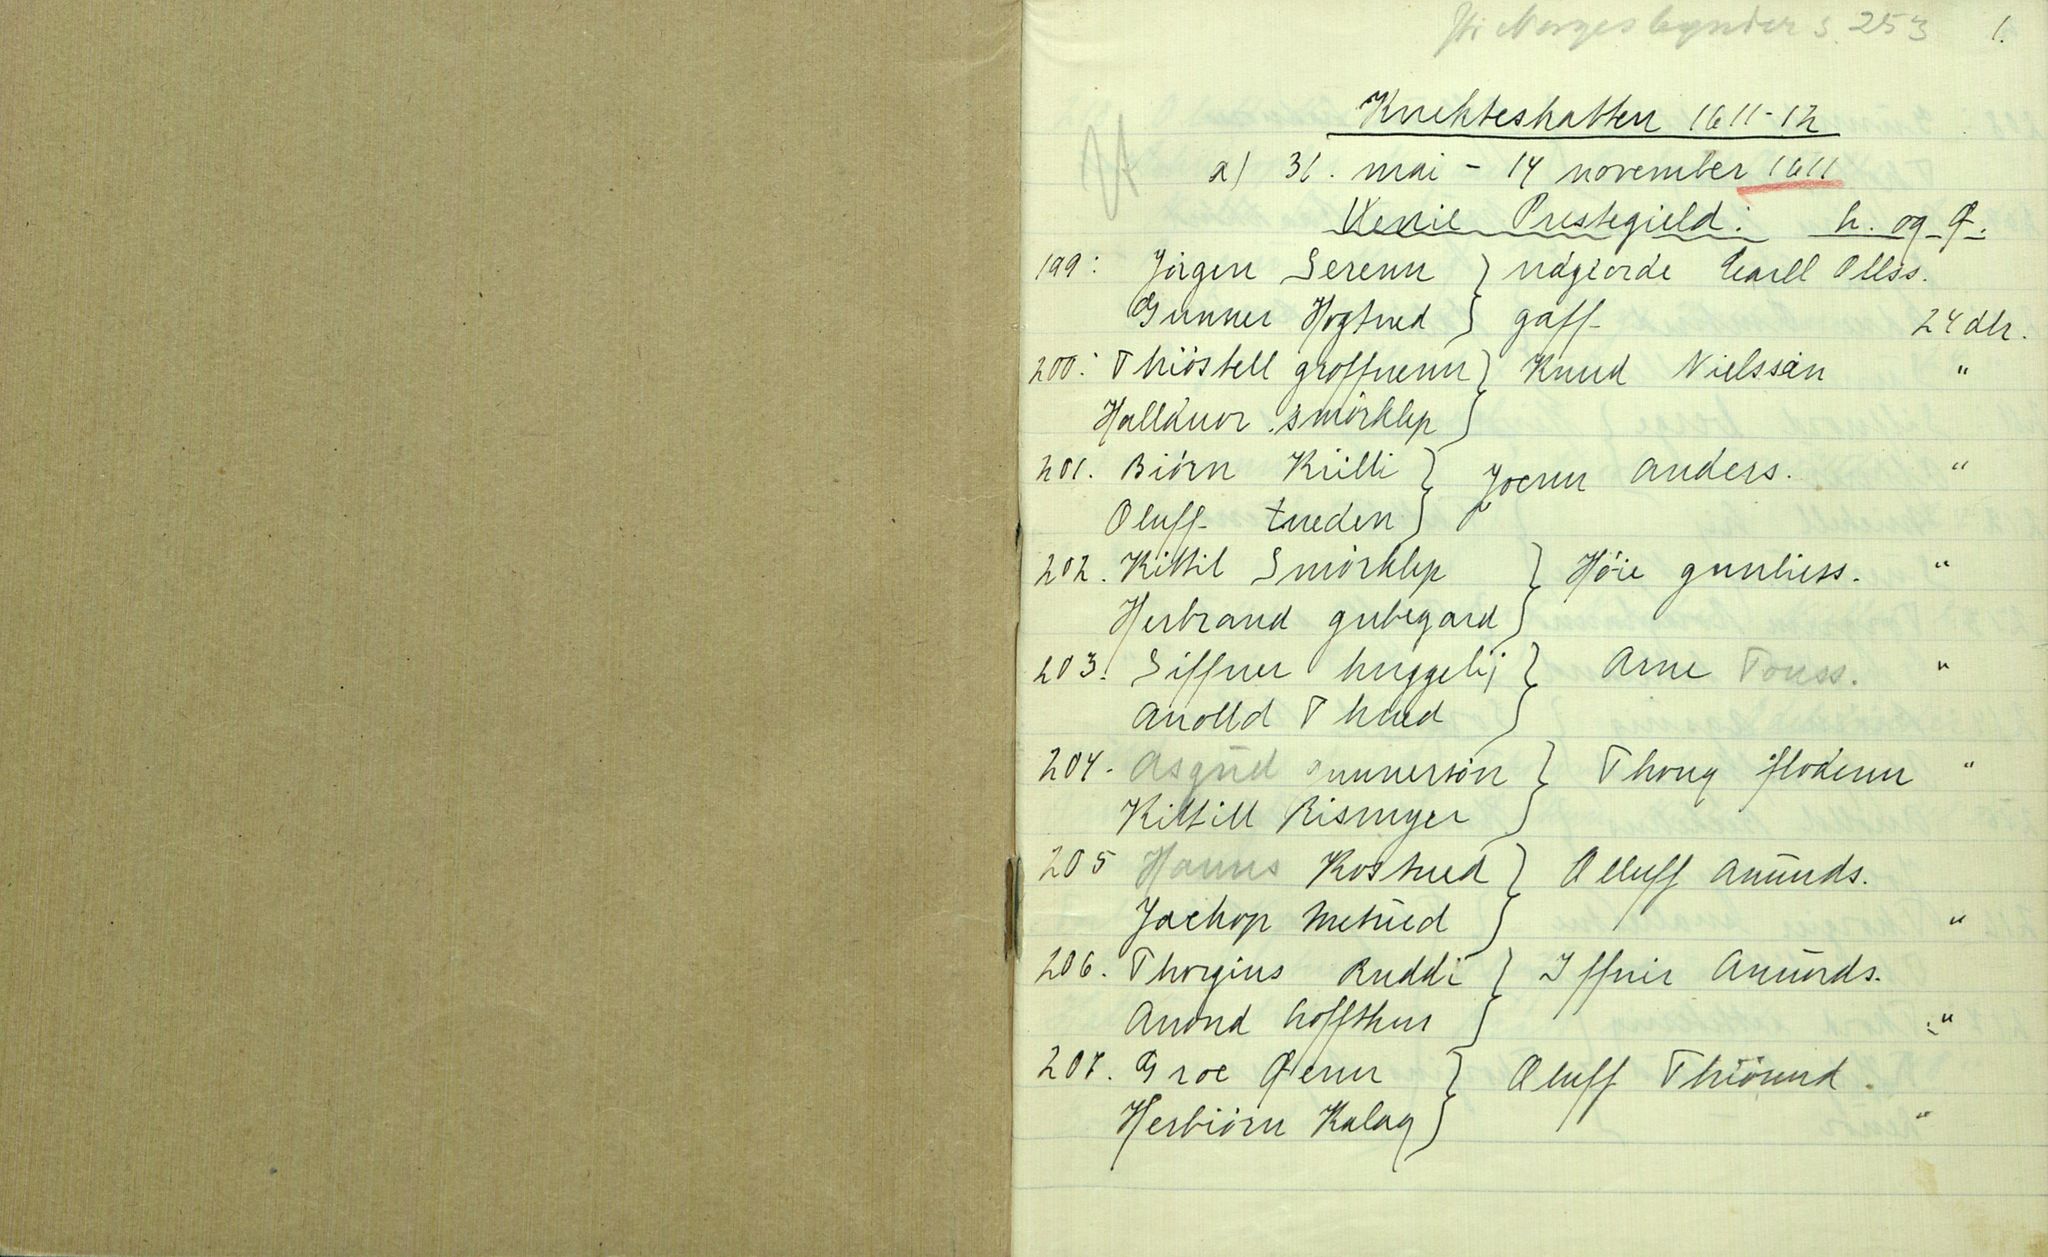 Norges bygder s. 253 1.
Knekteskatten 1611-12
a) 31. mai - 14 november 1611
Prestegield: h. og Q.
199: Jörgen Serenn } udgiorde Carll Ollss.
Gunner Hogtued } gaff 24 dlr.
200: Thiöstell groffuenn } Knud Nielssän "
Halduor smörklep }
201. Biörn Killi } Joenn Anders. "
Oluff tueden }
202. Kittil Smörklep } Höie gunliess. "
Herbrand gubegard }
203. Siffuer huggelij } Arne Touss. "
Anolld Thued }
204. Asgud gunnersön } Thong flodenn "
Kittill Rismyer }
205 Hanns Rostued } Olluff Anunds.
Jachop "
206. Thorgius Ruddi } Iffuir Amunds.
Anond hoffthun } "
207. Groe Øenn } Oluff Thiöund.
Herbiörn Kalag } "